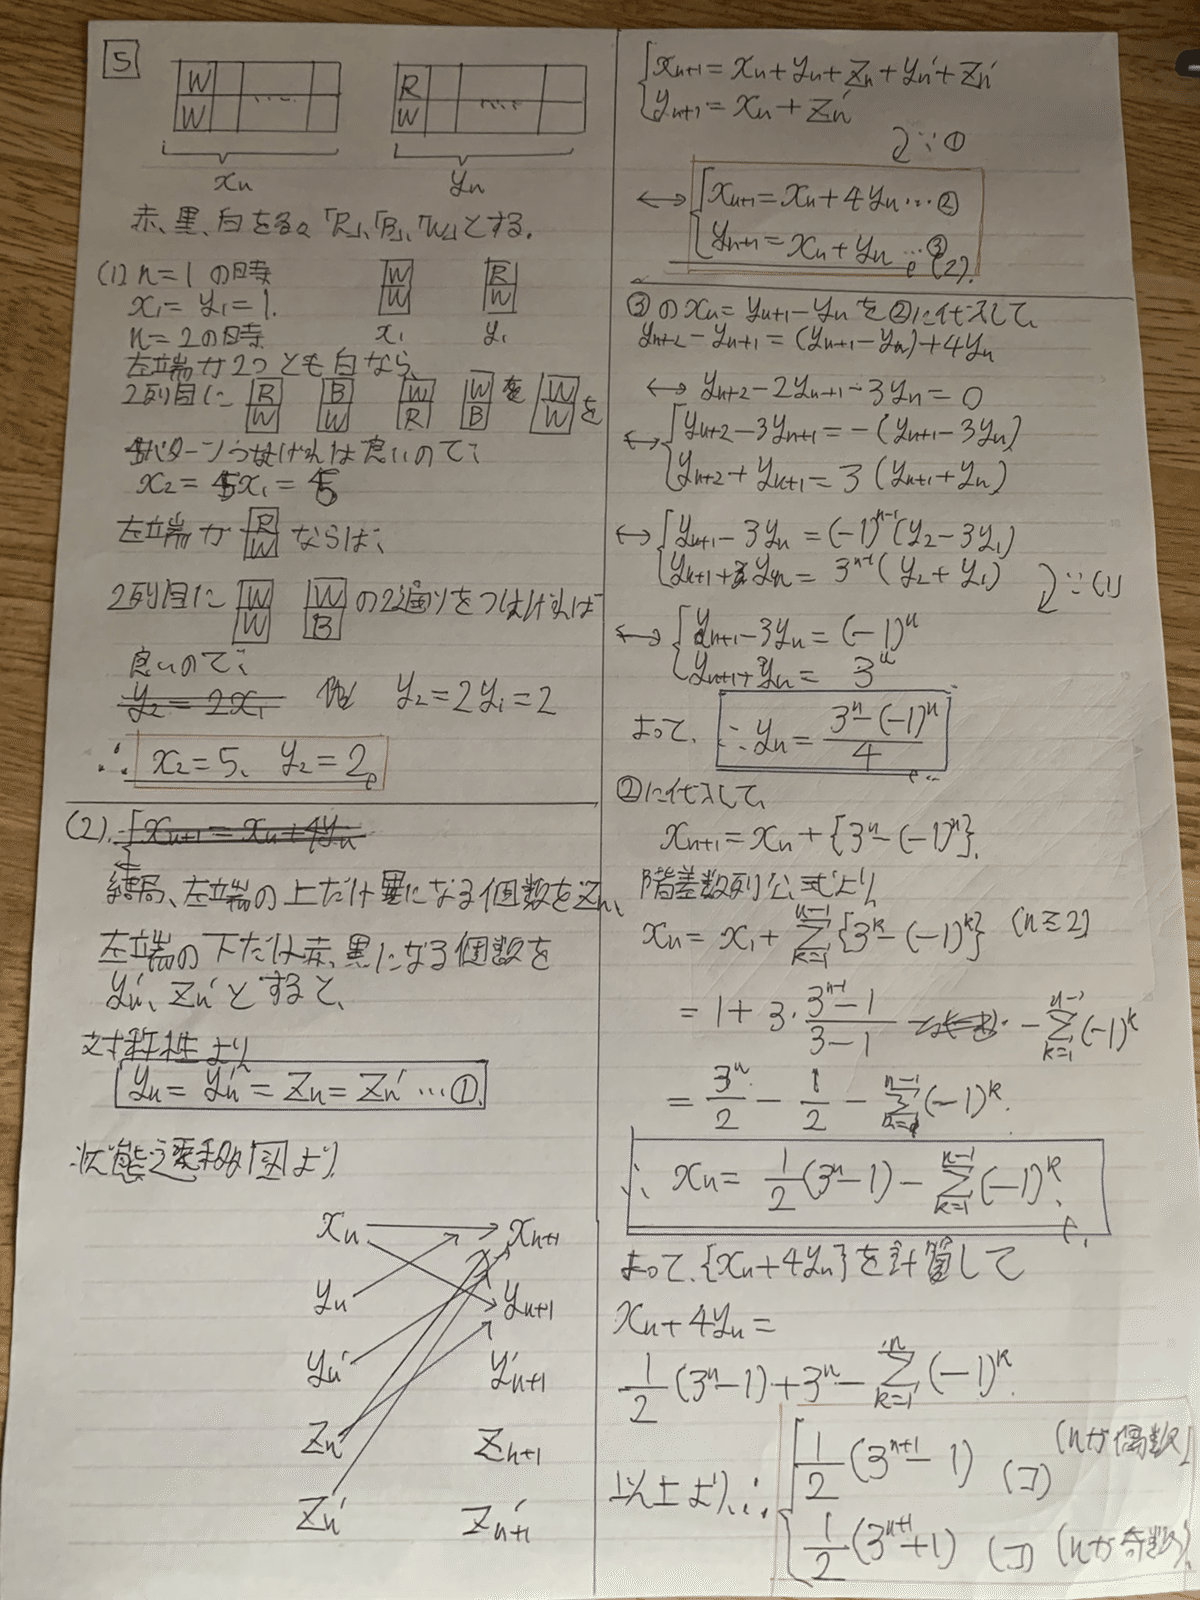 5
W
W
R
W
xn
yn
赤、黒、白を各々「R」、「B」、「W」とする。
(1) n=1 の時
x1= y1=1.
n=2の時
W
W
x1
R
W
y1
左端が2つとも白なら、
2列目に R B W W を W を
W W R B W
5パターンつなげれば良いので
x2=5x1=5
左端が R ならば、
W
2列目に W W の2通りをつなげれば
W B
良いので
y2=2x1
y2=2y1=2
∴ x2=5、 y2=2
(2). xn+1=xn+4yn
結局、左端の上だけ黒になる個数をzn、
左端の下だけ赤、黒になる個数を
yn'、zn'とすると、
対称性より
yn= yn'= zn= zn' …①
状態遷移図より
xn
xn+1
yn
yn+1
yn'
y'n+1
zn
zn+1
zn'
z'n+1
xn+1=xn+yn+zn+yn'+zn'
yn+1=xn+zn'
∵①
↔ xn+1=xn+4yn…②
yn+1=xn+yn …③
(2).
③のxn=yn+1-ynを②に代入して、
yn+2-yn+1=(yn+1-yn)+4yn
↔ yn+2-2yn+1-3yn=0
↔ yn+2-3yn+1=-(yn+1-3yn)
yn+2+yn+1=3(yn+1+yn)
↔ yn+1-3yn=(-1)^n-1(y2-3y1)
yn+1+yn=3^n-1(y2+y1)
∵(1)
↔ yn+1-3yn=(-1)^n
yn+1+yn= 3^n
よって、 ∴yn= 3^n-(-1)^n / 4
②に代入して、
xn+1=xn+{3^n-(-1)^n}.
階差数列公式より
xn= x1+ Σ k=1 n-1 {3^k-(-1)^k} (n≧2)
=1+3・3^n-1-1 / 3-1 - Σ k=1 n-1 (-1)^k
= 3^n / 2 - 1 / 2 - Σ k=1 n-1 (-1)^k.
∴ xn= 1/2 (3^n-1)- Σ k=1 n-1 (-1)^k.
よって、{xn+4yn}を計算して
xn+4yn=
1/2 (3^n-1)+3^n- Σ k=1 n (-1)^k.
以上より、∴ 1/2 (3^n+1-1) (コ) (nが偶数)
1/2 (3^n+1+1) (コ) (nが奇数)